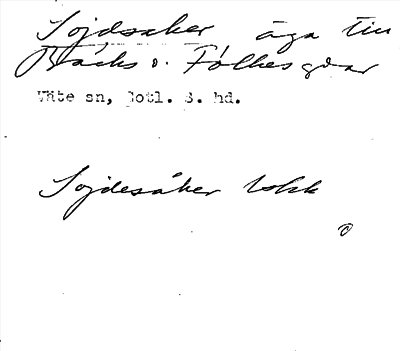 Sojdsaker äga till
Bäcks o. Folkes gdar
Väte sn, Gotl. S. hd.
Sojdesåker